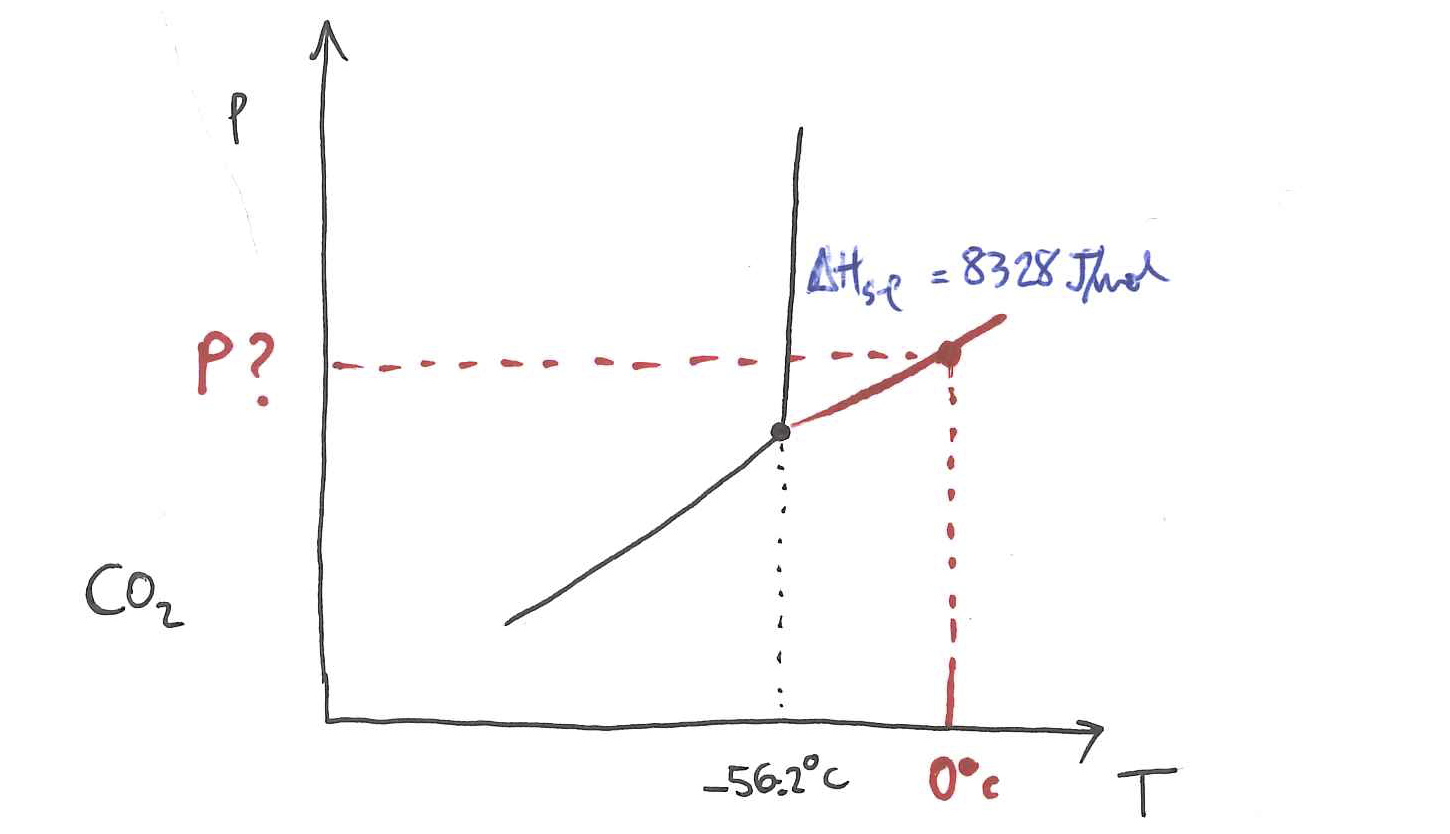 P
ΔHs-l = 8328 J/mol
P?
CO2
-56.2°C
0°C
T